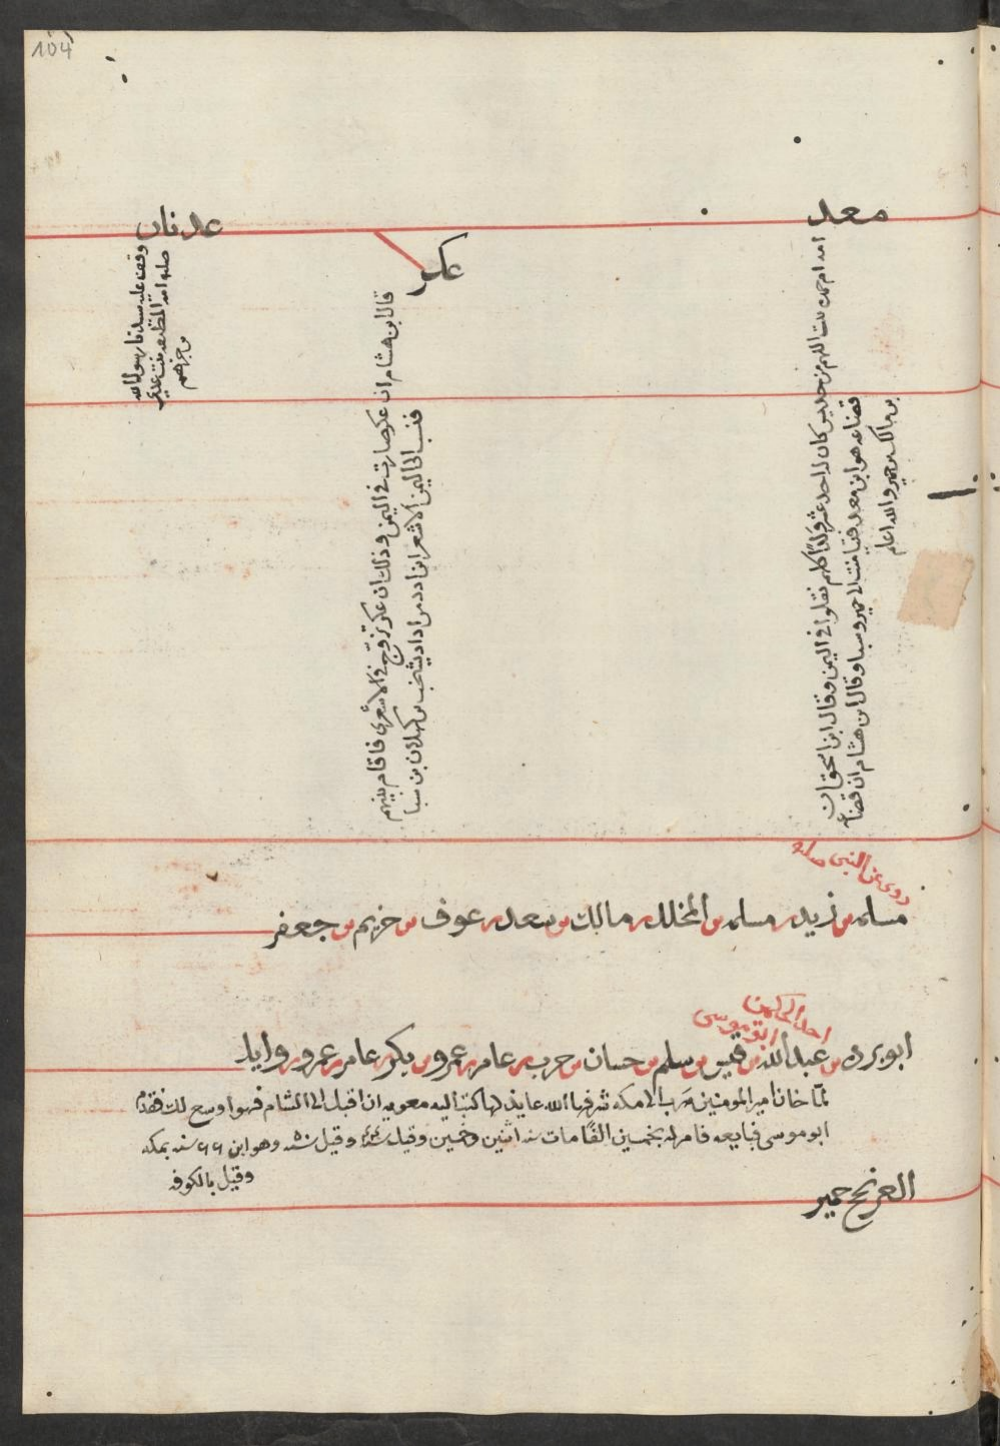 104
معد
امه ام مهدد بنت اللهم من جديس كان له احد عشر ولدًا كلهم نقلوا في اليمن وقال ابن اسحق ان
قضاعه هو ابن معد فتيامنت الى حمير وسبا وقال ابن هشام ان قضاعه
بن مالك بن حمير والله اعلم
عك
قال ابن هشام ان عك صارت في اليمن وذلك ان عك تزوج في الاشعرى فاقام بينهم
فنسب الى اليمن الاشعر ابن ادد بن يشخب بن كهلان بن سبا
عدنان
وقف عليه سيدنا رسول الله
صلعم امه بنت
من جرهم
روى عن النبى صلعم
مسلمه بن زيد بن مسلمه بن المخلد بن مالك بن سعد بن عوف بن خزيم بن جعفر
احد الحاكمين
ابو موسى
ابو برده بن عبد الله بن قيس بن سليم بن حسان بن حرب بن عامر بن عمرو بن بكر بن عامر بن عمرو بن وايل
لمّا خان امير المومنين هرب الى مكه شرفها الله عايذ لها كتب اليه معويه ان اقبل الى الشام فهو اوسع لك فقدم
ابو موسى فبايعه فامر له بخمسين الفًا مات سنه اثنين وخمسين وقيل سنه ٤٤ وقيل سنه ٥٠ وهو ابن ٦٦ سنه بمكه
وقيل بالكوفه
العرنجج حمير